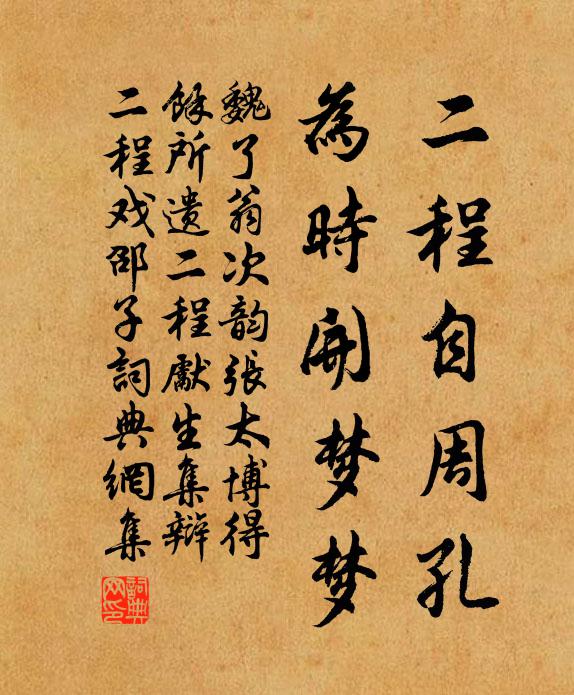 二程自周孔
為時開梦梦
魏了翁次韵張太博得
餘所遺二程獻生集辯
二程戏邵子詞典網集
詞典
网印